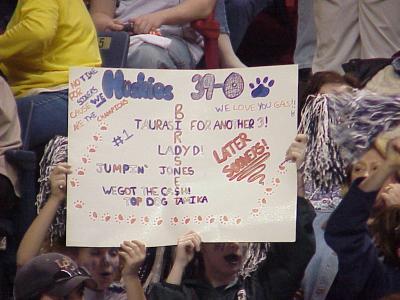 NO TIME
FOR
LOSERS
CAUSE WE
ARE THE CHAMPIONS
Huskies 39-0
WE LOVE YOU GAS!!
#1
BIRDSEYE
TAURASI FOR ANOTHER 3!
LADY D!
JUMPIN' JONES
LATER
SOONERS!
WE GOT THE CASH!
TOP DOG TAMIKA